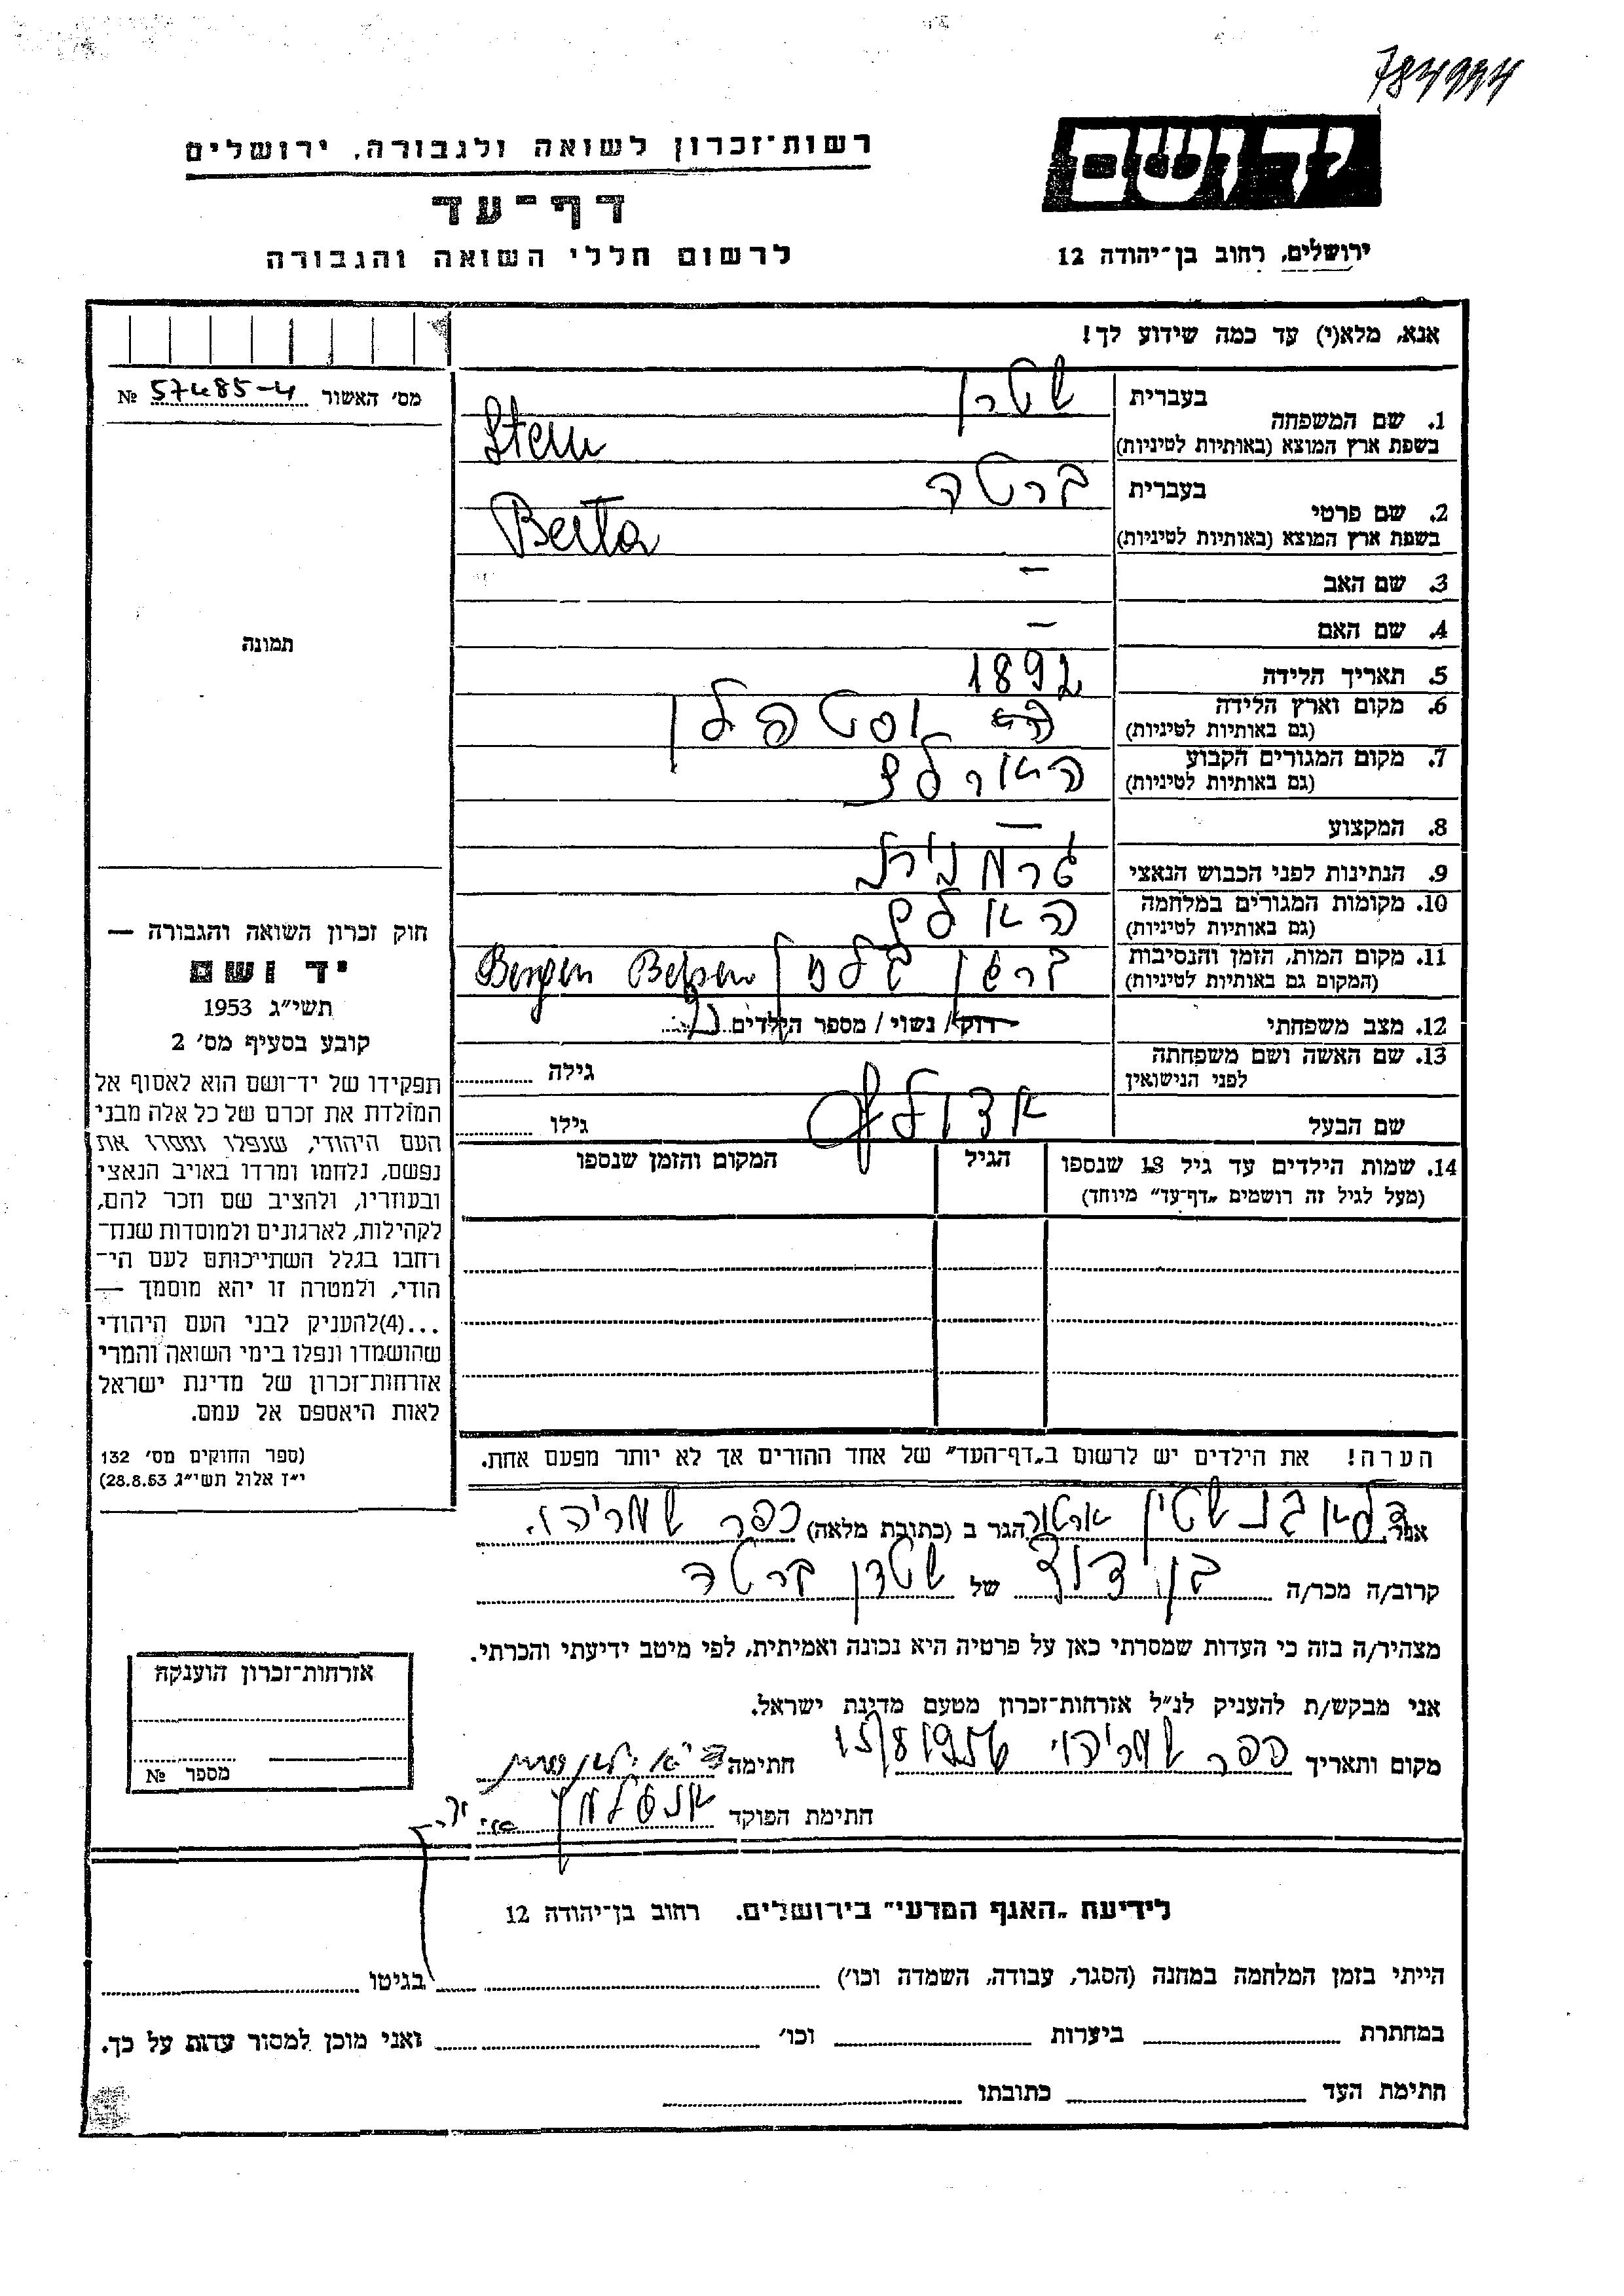 784994
רשות־זכרון לשואה ולגבורה, ירושלים
יד ושם
דף־עד
לרשום חללי השואה והגבורה
ירושלים, רחוב בן־יהודה 12
אנא, מלא(י) עד כמה שידוע לך!
מס׳ האשור 57485-4 №
1. שם המשפחה
בעברית שטרן
בשפת ארץ המוצא (באותיות לטיניות) Stern
2. שם פרטי
בעברית ברטה
בשפת ארץ המוצא (באותיות לטיניות) Berta
3. שם האב —
4. שם האם —
5. תאריך הלידה 1892
6. מקום וארץ הלידה
(גם באותיות לטיניות)
7. מקום המגורים הקבוע
(גם באותיות לטיניות)
8. המקצוע —
9. הנתינות לפני הכבוש הנאצי גרמנית
10. מקומות המגורים במלחמה
(גם באותיות לטיניות)
11. מקום המות, הזמן והנסיבות ברגן בלזן Bergen Belsen
(המקום גם באותיות לטיניות)
12. מצב משפחתי רווק / נשוי / מספר הילדים
13. שם האשה ושם משפחתה
לפני הנישואין
גילה
שם הבעל אדולף גילו
14. שמות הילדים עד גיל 18 שנספו
(מעל לגיל זה רושמים „דף־עד״ מיוחד)
הגיל
המקום והזמן שנספו
הערה! את הילדים יש לרשום ב„דף־העד״ של אחד ההורים אך לא יותר מפעם אחת.
תמונה
חוק זכרון השואה והגבורה —
יד ושם
תשי״ג 1953
קובע בסעיף מס׳ 2
תפקידו של יד־ושם הוא לאסוף אל
המולדת את זכרם של כל אלה מבני
העם היהודי, שנפלו ומסרו את
נפשם, נלחמו ומרדו באויב הנאצי
ובעוזריו, ולהציב שם וזכר להם,
לקהילות, לארגונים ולמוסדות שנח־
רחבו בגלל השתייכותם לעם הי־
הודי, ולמטרה זו יהא מוסמך —
...(4)להעניק לבני העם היהודי
שהושמדו ונפלו בימי השואה והמרי
אזרחות־זכרון של מדינת ישראל
לאות היאספם אל עמם.
(ספר החוקים מס׳ 132
י״ז אלול תשי״ג 28.8.53)
אני הגר ב (כתובת מלאה) כפר שמריהו.
קרוב/ה מכר/ה בן דוד של שטרן ברטה
מצהיר/ה בזה כי העדות שמסרתי כאן על פרטיה היא נכונה ואמיתית, לפי מיטב ידיעתי והכרתי.
אני מבקש/ת להעניק לנ״ל אזרחות־זכרון מטעם מדינת ישראל.
מקום ותאריך כפר שמריהו 15/8 1956 חתימה
חתימת הפוקד
אזרחות־זכרון הוענקה
מספר №
לידיעת „האגף המדעי״ בירושלים. רחוב בן־יהודה 12
הייתי בזמן המלחמה במחנה (הסגר, עבודה, השמדה וכו׳) בגיטו
במחתרת ביערות וכו׳ ואני מוכן למסור עדות על כך.
חתימת העד כתובתו